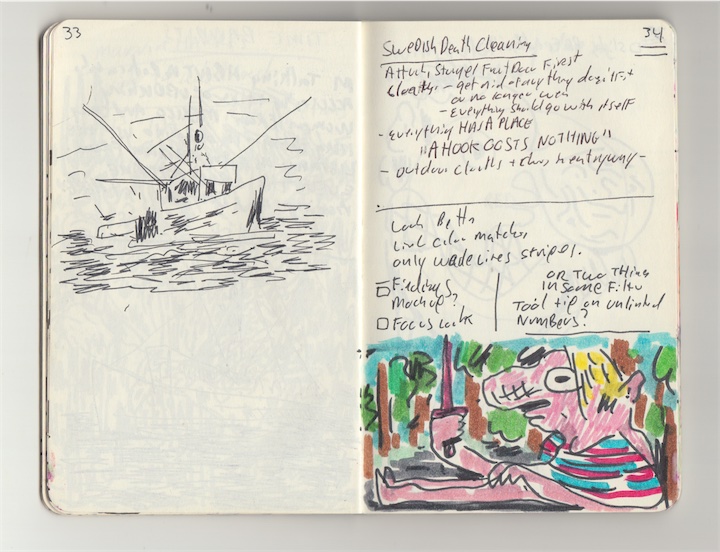 33
34
Swedish Death Cleaning
Attic, Storage, Front Door First
Clearly - get rid of anything doesn't fit
or no longer worn
- Everything should go with itself
- everything HAS A PLACE
"A HOOK COSTS NOTHING"
- outdoor cloths + shoes in entryway -
Look Better
Link color matches
only wide lines stripes.
Findings
mockup?
Focus Look
OR Two Things
in Same Filter
Tool tip on unlinked
Numbers?